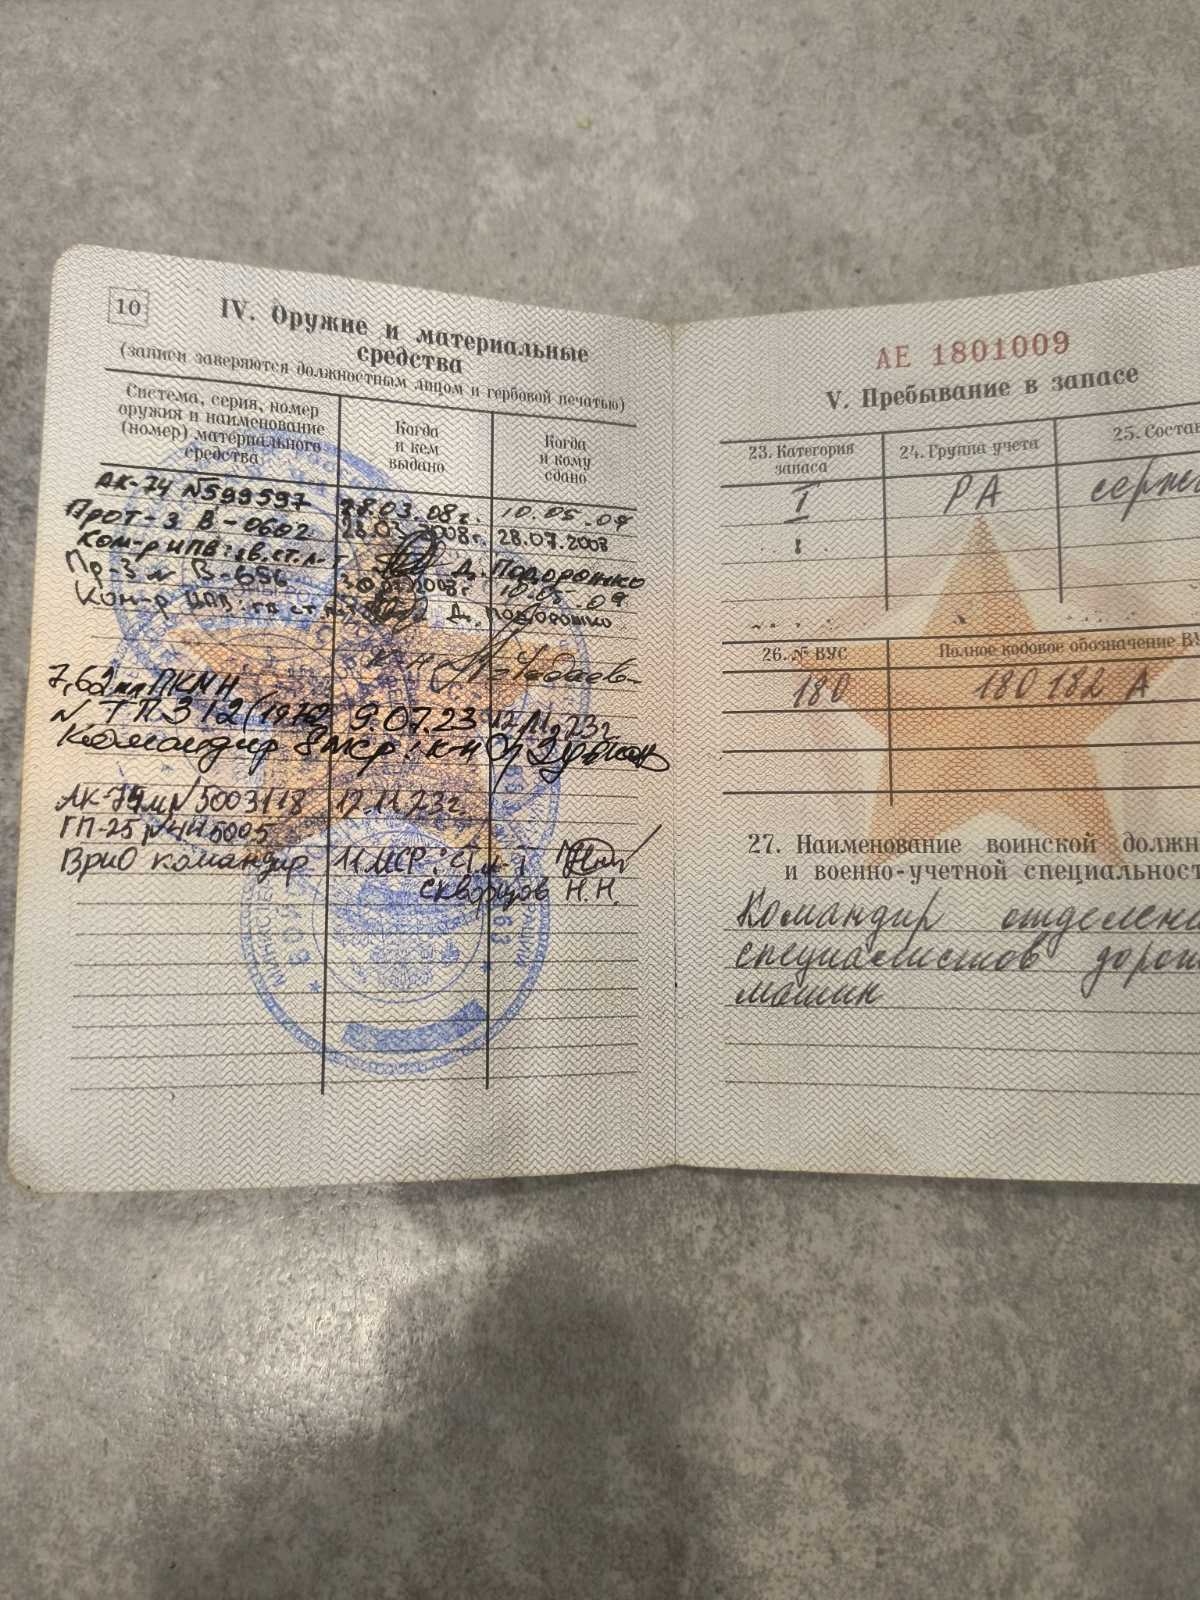 10
IV. Оружие и материальные
средства
(записи заверяются должностным лицом и гербовой печатью)
Система, серия, номер
оружия и наименование
(номер) материального
средства
Когда
и кем
выдано
Когда
и кому
сдано
АК-74 №599597 28.03.08г. 10.05.09
Прот-3 В-0602 28.03.2008г. 28.07.2008
Ком-р ИПВ: гв.ст.л-т Д. Подорожко
Пр-3 № В-656 2008г 10.05.09
Ком-р ИПВ: гв ст. Д. Подорожко
к-н
7,62мм ПКМН
№ ТП312 (1972 9.07.23 12.11.23г
Командир 8мср: к-н
АК-74м№5003118 12.11.23г.
ГП-25 №
ВриО командир 11МСР: ст.л-т
Скворцов Н.Н.
АЕ 1801009
V. Пребывание в запасе
23. Категория
запаса
24. Группа учета
25. Состав
I РА серж
26. № ВУС
Полное кодовое обозначение ВУ
180 180 182 А
27. Наименование воинской должн
и военно-учетной специальност
Командир отделени
специалистов дорож
машин